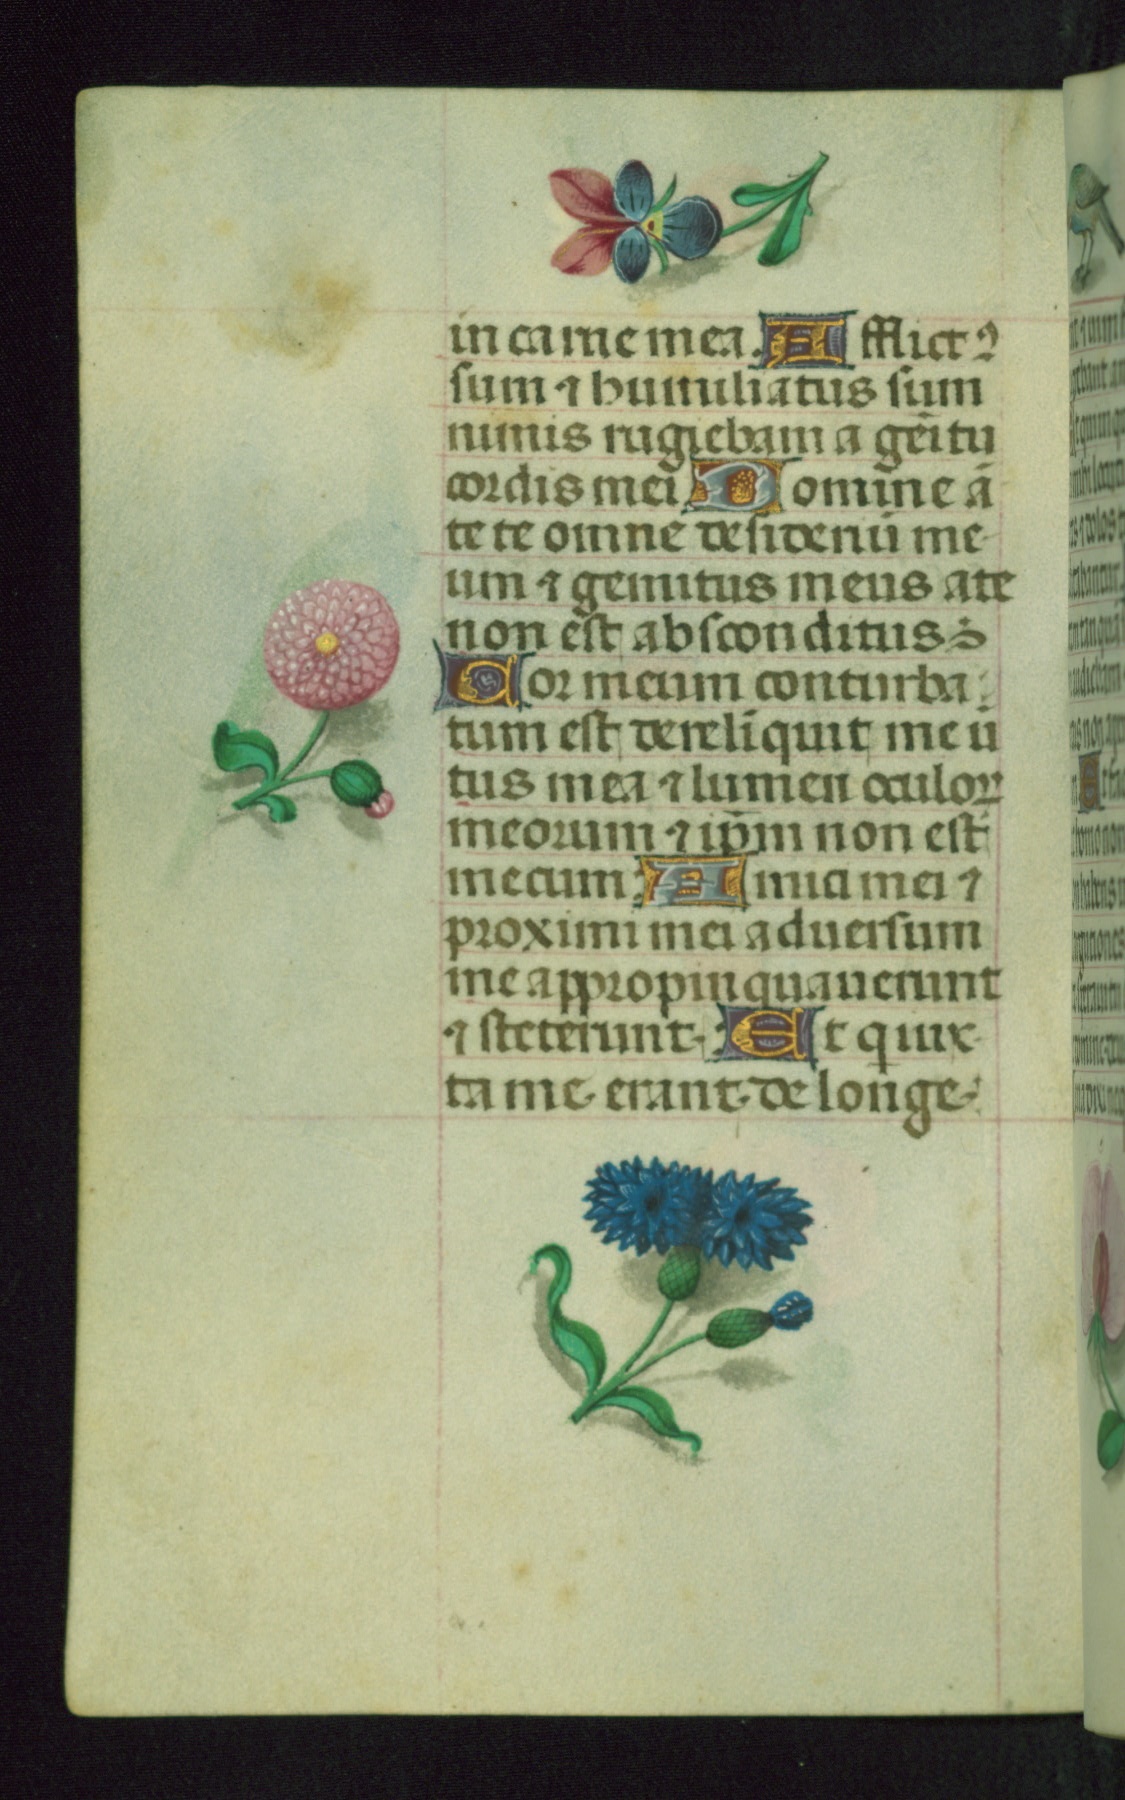 in carne mea. Afflictꝰ
sum ⁊ humiliatus sum
nimis rugiebam a gēitu
cordis mei. Domine ā
te te omne desideriū me-
um ⁊ gemitus meus a te
non est absconditus:
Cor meum conturba
tum est dereliquit me ū
tus mea ⁊ lumen oculoꝝ
meorum ⁊ ip̄m non est
mecum: Amici mei ⁊
proximi mei aduersum
me appropinquauerunt
⁊ steterunt. Et qui ix
ta me erant de longe.